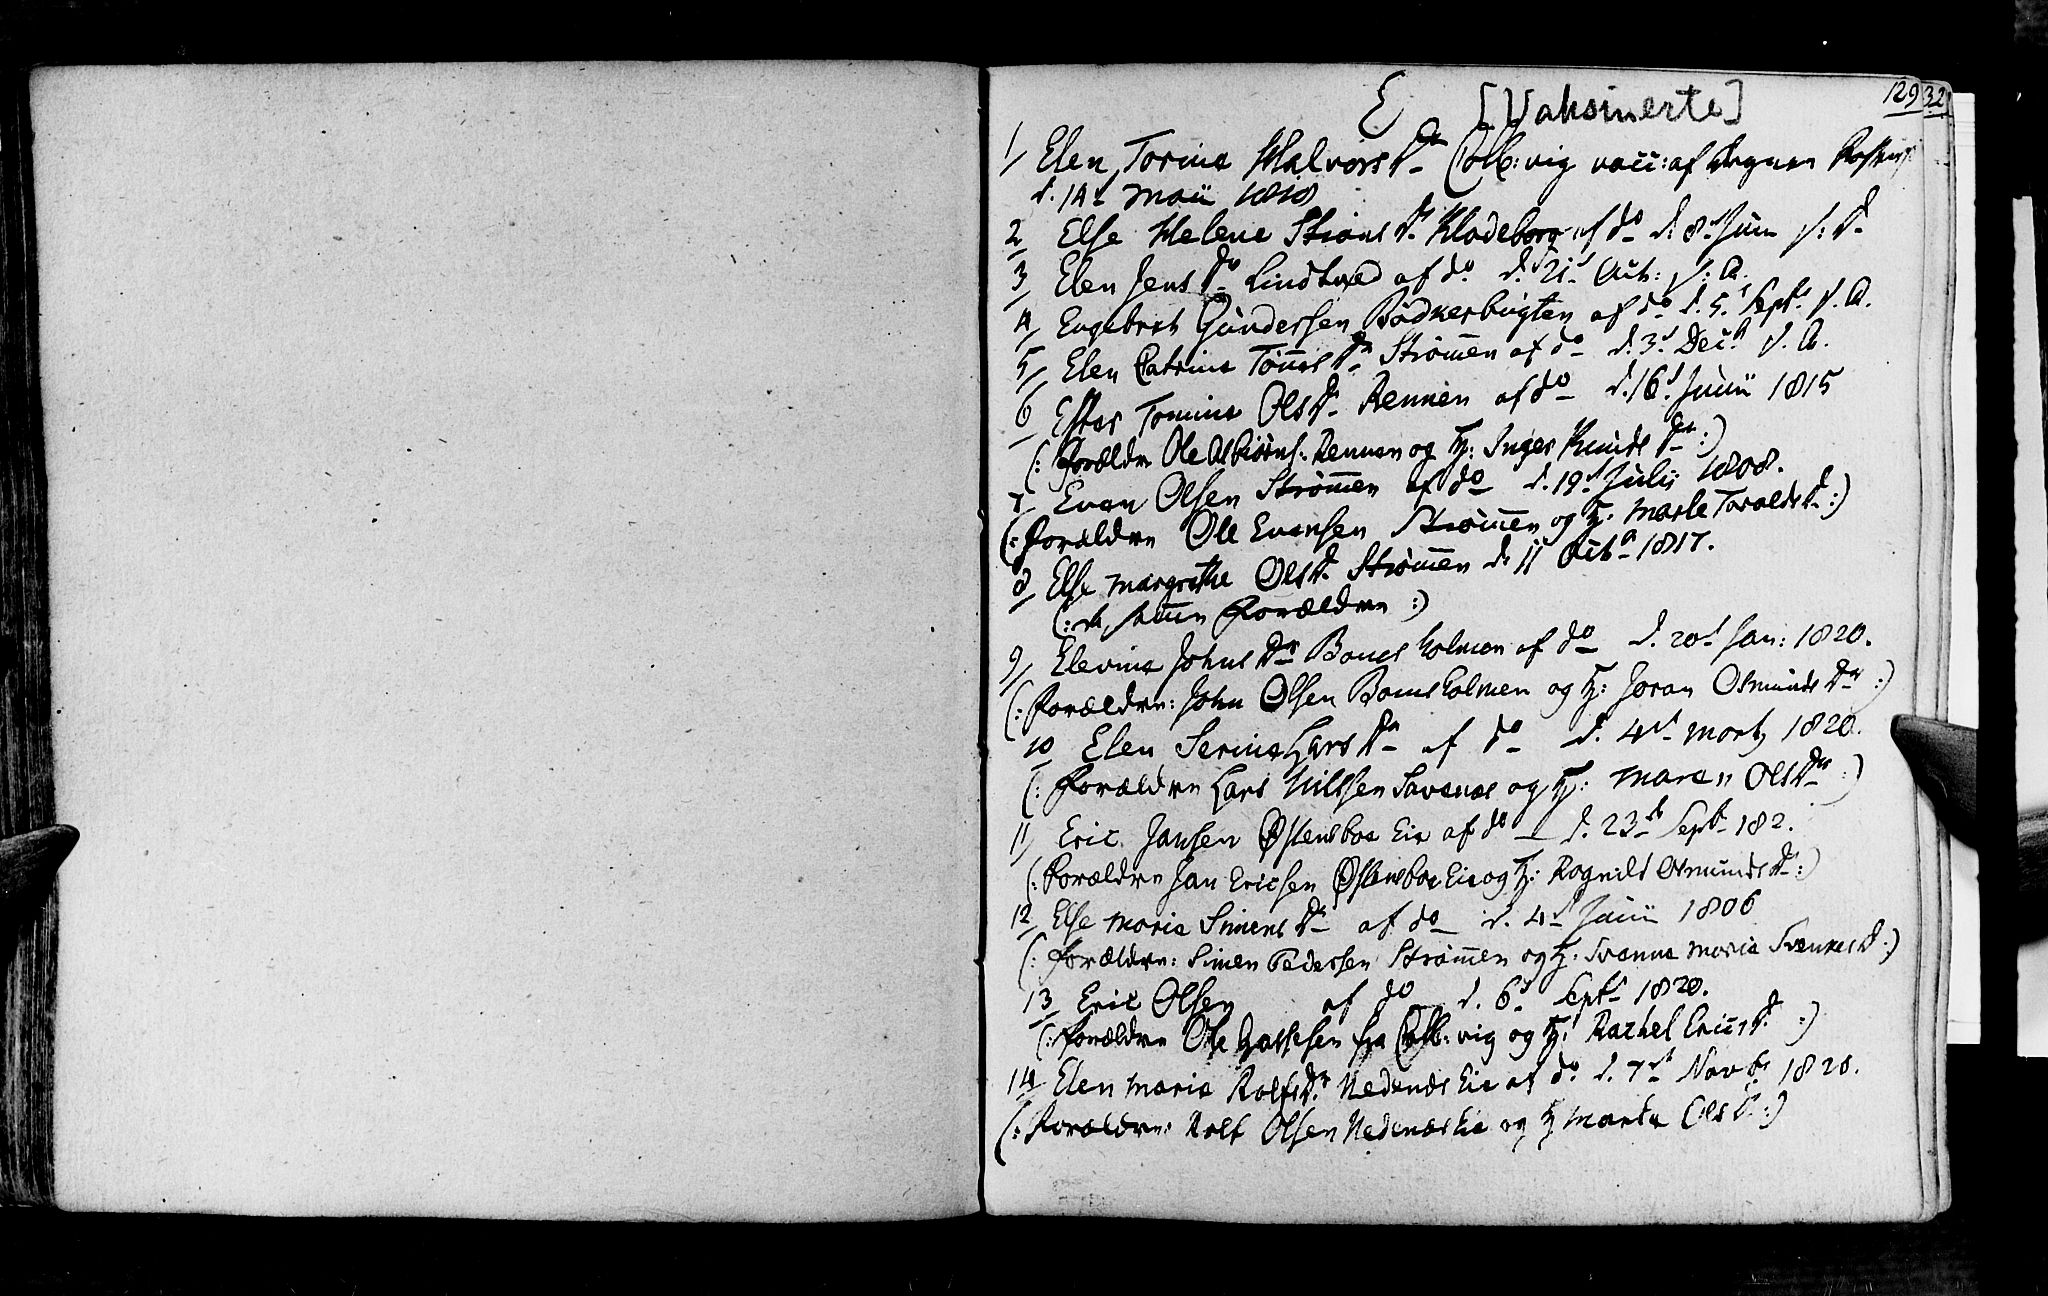 E [Vaksinerte] 129 32
1/ Elen Torine HalvorsDr Colb:vig vacc: af
d. 14d Maii 1818
2/ Else Helene Dr Kladeborg af do d. 8d Juni s: A
3/ Elen JensDr Lindtved af do d. 21d Oct: s: A.
4/ Engebret Gundersen Bödkerbugten af do d. 5d Septr s. A.
5/ Elen Catrine TönnesDr Strömmen af do d. 3d Decbr s. A.
6/ Ester Tomine OlsDr Rennen af do d. 16d Junii 1815
(: Forældre Ole Asbiörns: Rennen og H: Inger KnudsDr :)
7/ Even Olsen Strömmen af do d. 19d Julii 1808.
(: Forældre Ole Evensen Strömmen og H. Marte ToraldsD. :)
8/ Else Margrethe OlsD. Strömmen d. 11 Octbr 1817.
(: de samme Forældre :)
9/ Elevine JohnsDr Bomsholmen af do d. 20d Jan: 1820.
(: Forældre: John Olsen Bomsholmen og H: Joran OsmundsDr :)
10 Elen Serine LarsDr af do d. 4d Martz 1820.
(: Forældre Lars Nilssen Savenes og H: Maren OlsDr :)
11/ Eric Jansen Östensboe Eie af do d. 23d Septr 182.
(: Forældre Jan Ericsen Östensboe Eie og H: Ragnild OsmundsDr :)
12/ Else Maria SimensDr af do d. 4d Junii 1806
(: Forældre: Simen Pedersen Strömmen og H: Svenne Maria SvenkesD :)
13/ Eric Olsen af do d. 6d Septr 1820.
(: Forældre Ole fra Colb:vig og H: Rachel EricsD. :)
14/ Elen Maria RolfsDr Nedenæs Eie af do d. 7d Novbr 1820.
(: Forældre: Rolf Olsen Nedenæs Eie og H Marte OlsD. :)